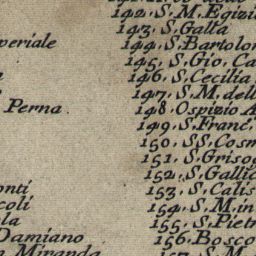 142. S. M. Egizi
143. S. Galla
periale
144. S. Bartolo
145. S. Gio. Ca
146. S. Cecilia
147. S. M. dell
Perna.
148. Ospizio A
149. S. Franc.
150. SS. Cosm
151. S. Grisog
152. S. Gallic
onti
153. S. Calis
coli
154. S. M. in
ola
155. S. Pietr
Damiano
156. Bosco
Miranda
157. S. M.